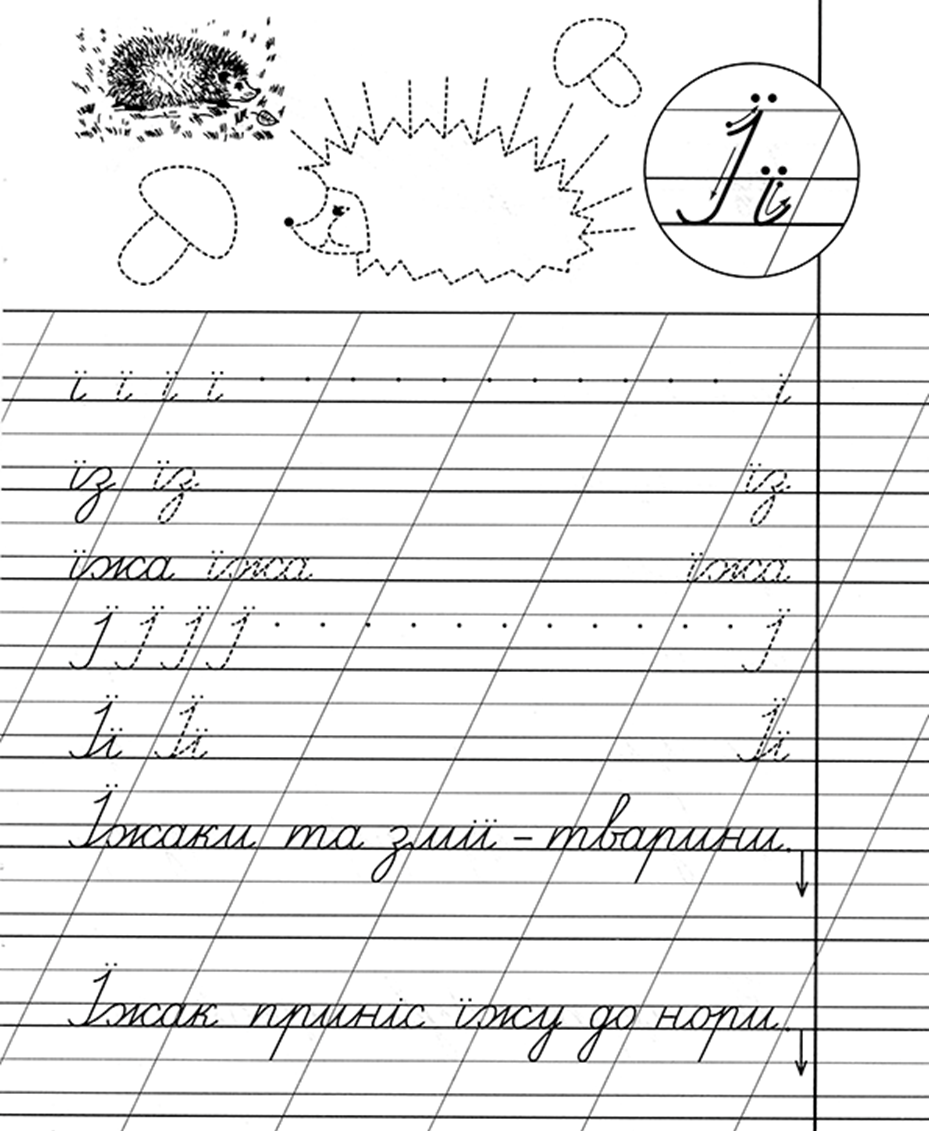 Ї ї
ї ї ї ї ї
їз їз їз
їжа їжа їжа
Ї Ї Ї Ї Ї
Її Її Її
Їжаки та змії – тварини.
Їжак приніс їжу до нори.